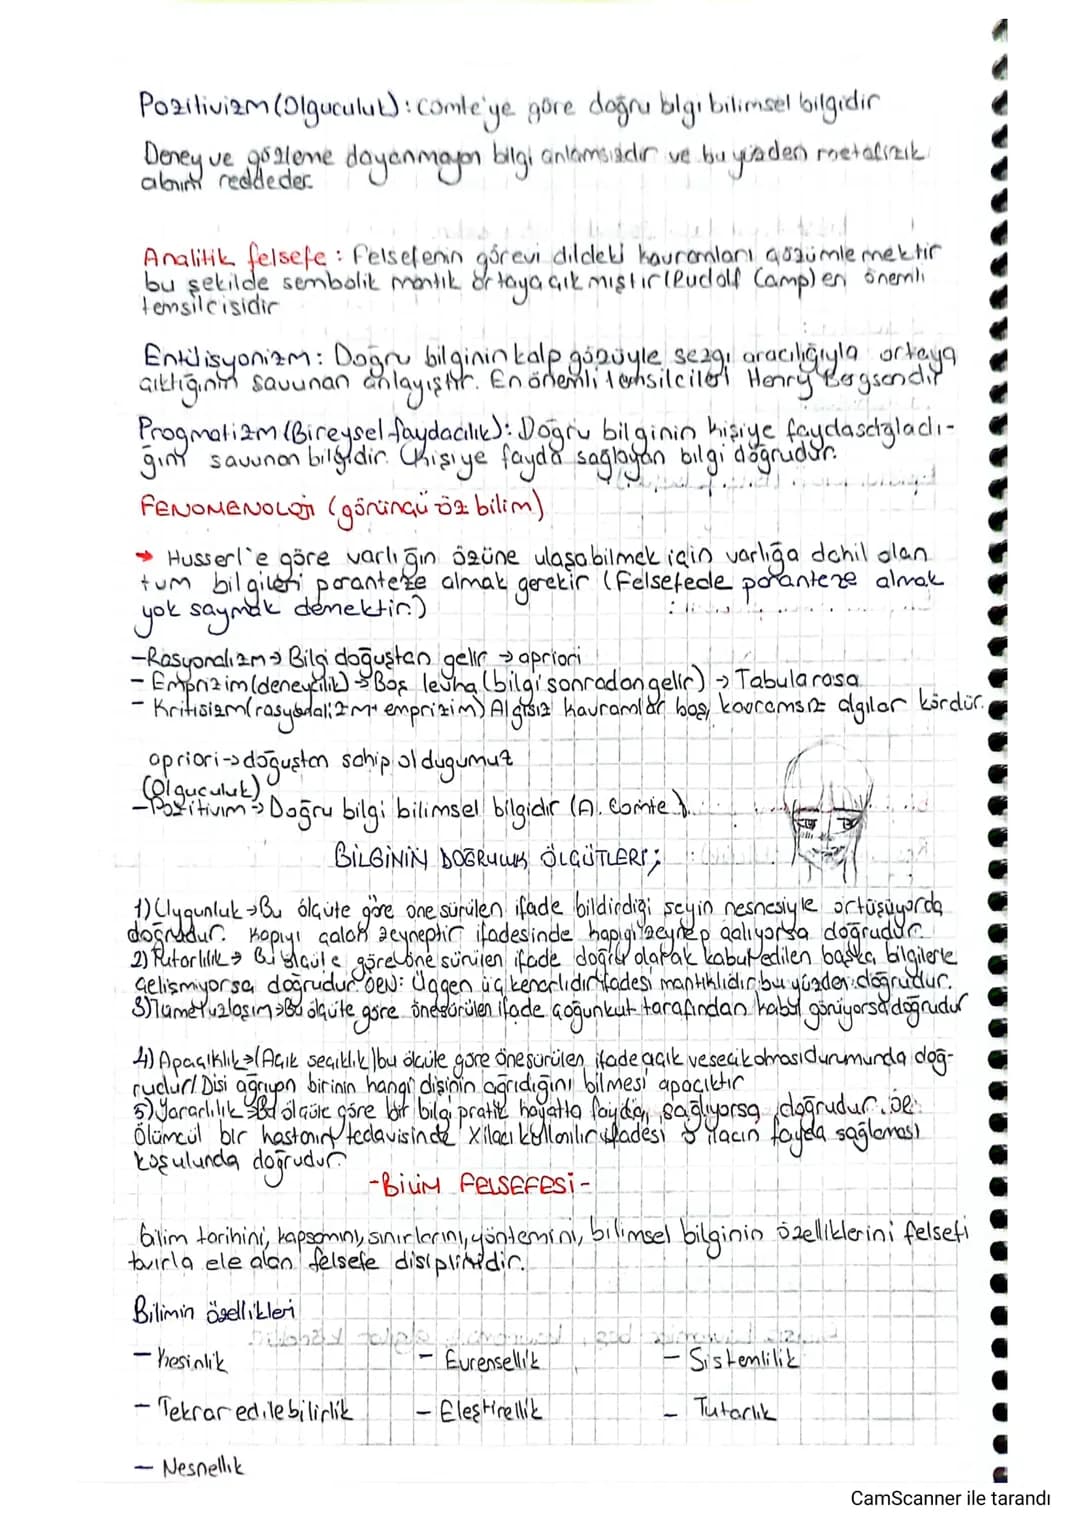 Pozitivizm (Olguculuk): comte'ye göre doğru bilgi bilimsel bilgidir
Deney ve gözleme dayanmayan bilgi anlamsızdır ve bu yüzden metafizik
alanını reddeder.
Analitik felsefe: Felsefenin görevi dildeki kavramları çözümlemektir
bu şekilde sembolik mantık ortaya çıkmıştır (Rudolf Carnap) en önemli
temsilcisidir
Entüisyonizm: Doğru bilginin kalp gözüyle sezgi aracılığıyla ortaya
çıktığının savunan anlayıştır. En önemli temsilcileri Henry Bergsondır
Pragmatizm (Bireysel faydacılık): Doğru bilginin kişiye faydasağladı-
ğını savunan bilgidir. Kişiye fayda sağlayan bilgi doğrudur.
FENOMENOLOJİ (görüngü öz bilim)
→ Husserl'e göre varlığın özüne ulaşabilmek için varlığa dahil olan
tum bilgileri paranteze almak gerekir (Felsefede paranteze almak
yok saymak demektir.)
-Rasyonalizm → Bilgi doğuştan gelir → apriori
- Emprizim (deneycilik) → Boş levha (bilgi sonradan gelir) → Tabula rasa
- Kritisizm (rasyonalizm + emprizim) Algısız kavramlar boş, kavramsız algılar kördür.
apriori → doğuştan sahip oldugumuz
(Olguculuk)
-Pozitivim → Doğru bilgi bilimsel bilgidir (A. Comte).
BİLGİNİN DOĞRULUK ÖLÇÜTLERİ;
1) Uygunluk → Bu ölçüte göre öne sürülen ifade bildirdiği şeyin nesnesiyle örtüşüyorda
doğrudur. Kapıyı çalan zeyneptir ifadesinde kapıyı zeynep çalıyorsa doğrudur.
2) Tutarlılık → Bu ölçüte göre öne sürülen ifade doğru olarak kabul edilen başka bilgilerle
çelişmiyorsa doğrudur. ÖRN: Üçgen üç kenarlıdır ifadesi mantıklıdır bu yüzden doğrudur.
3) Tümel uzlaşım → Bu ölçüte göre öne sürülen ifade çoğunluk tarafından kabul görüyorsa doğrudur
4) Apaçıklık → (Açık seçiklik) bu ölçüte göre öne sürülen ifade açık ve seçik olması durumunda doğ-
rudur / Dişi ağrıyan birinin hangi dişinin ağrıdığını bilmesi apaçıktır
5) Yararlılık → Bu ölçüte göre bir bilgi pratik hayatta fayda sağlıyorsa doğrudur. ör:
Ölümcül bir hastanın tedavisinde X ilacı kullanılır ifadesi o ilacın fayda sağlaması
koşulunda doğrudur.
-BİLİM FELSEFESİ-
Bilim tarihini, kapsamını, sınırlarını, yöntemini, bilimsel bilginin özelliklerini felsefi
tavırla ele alan felsefe disiplinidir.
Bilimin özellikleri
- Kesinlik - Evrensellik - Sistemlilik
- Tekrar edilebilirlik - Eleştirellik - Tutarlık
- Nesnellik
CamScanner ile tarandı